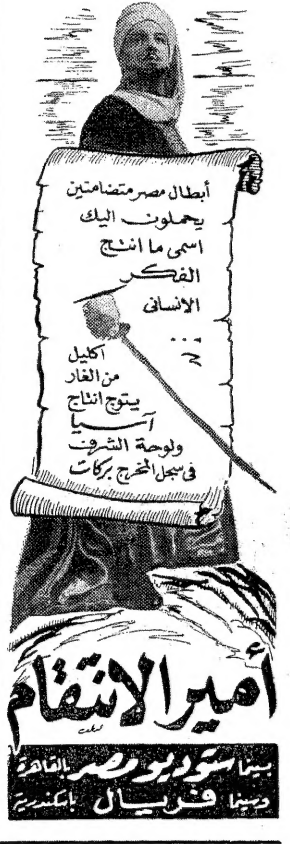 أبطال مصر متضامنين
يحملون اليك
اسمى ما انتج
الفكر
الانسانى
...
اكليل
من الغار
يتوج انتاج
آسيا
ولوحة الشرف
فى سجل المخرج بركات
أمير الانتقام
بسينما ستوديو مصر بالقاهرة
وسينما فريال باسكندرية